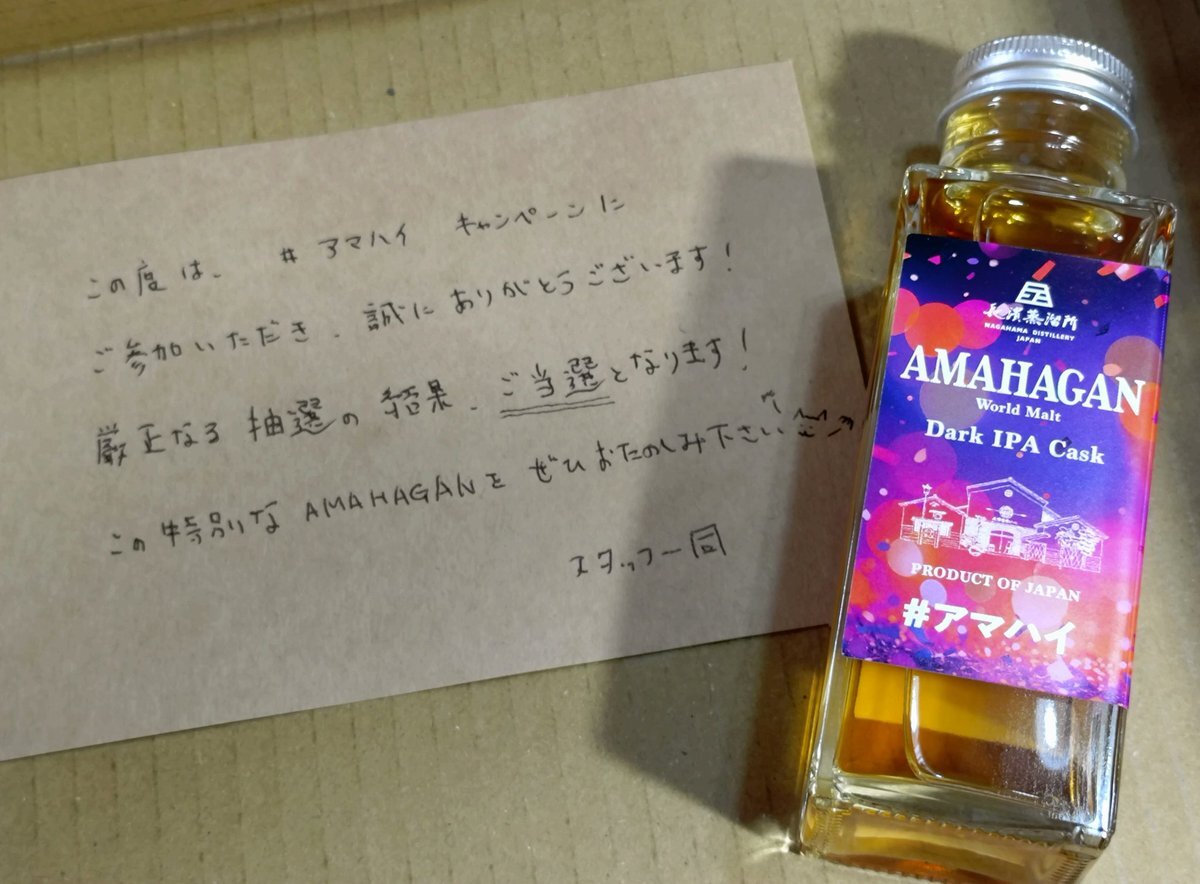 この度は、 #アマハイ キャンペーンに
ご参加いただき、誠にありがとうございます!
厳正なる抽選の結果、ご当選となります!
この特別な AMAHAGANを ぜひおたのしみ下さい
スタッフ一同
長濱蒸溜所
NAGAHAMA DISTILLERY
JAPAN
AMAHAGAN
World Malt
Dark IPA Cask
PRODUCT OF JAPAN
#アマハイ